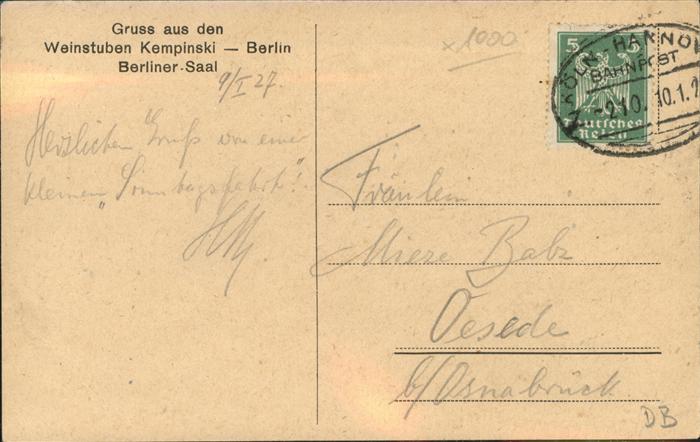 Gruss aus den
Weinstuben Kempinski — Berlin
Berliner-Saal
9/I 27.
Herzlichen Gruß von einer
kleinen „Sonntagsfahrt“!
x1000
5 5
Deutsches
Reich
KÖLN-HANNOV
BAHNPOST
10.1.2
Fräulein
Mieze
Oesede
b/Osnabrück
DB